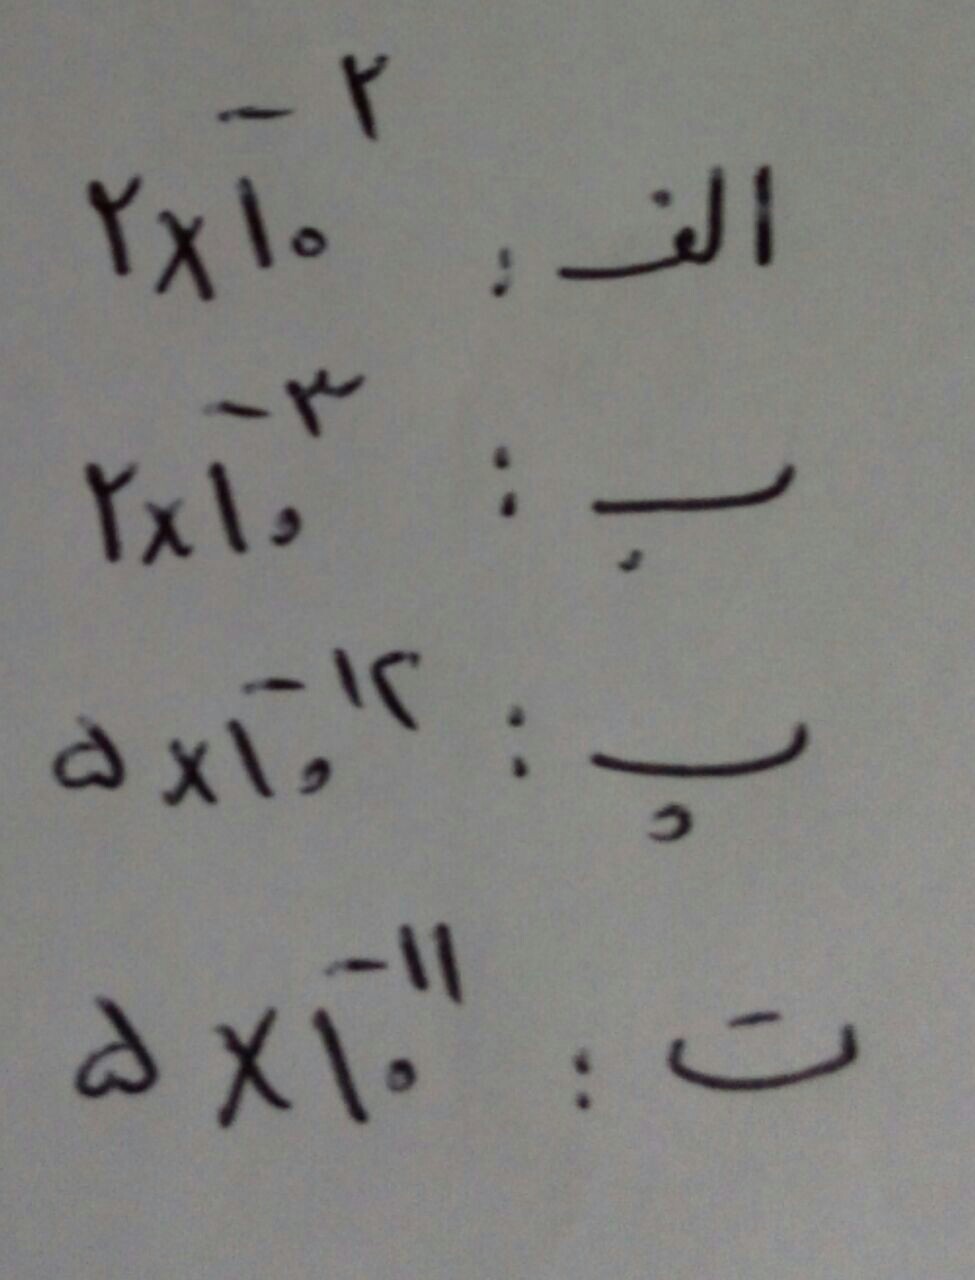 الف: ۲×۱۰^-۲
ب: ۲×۱۰^-۳
پ: ۵×۱۰^-۱۲
ت: ۵×۱۰^-۱۱